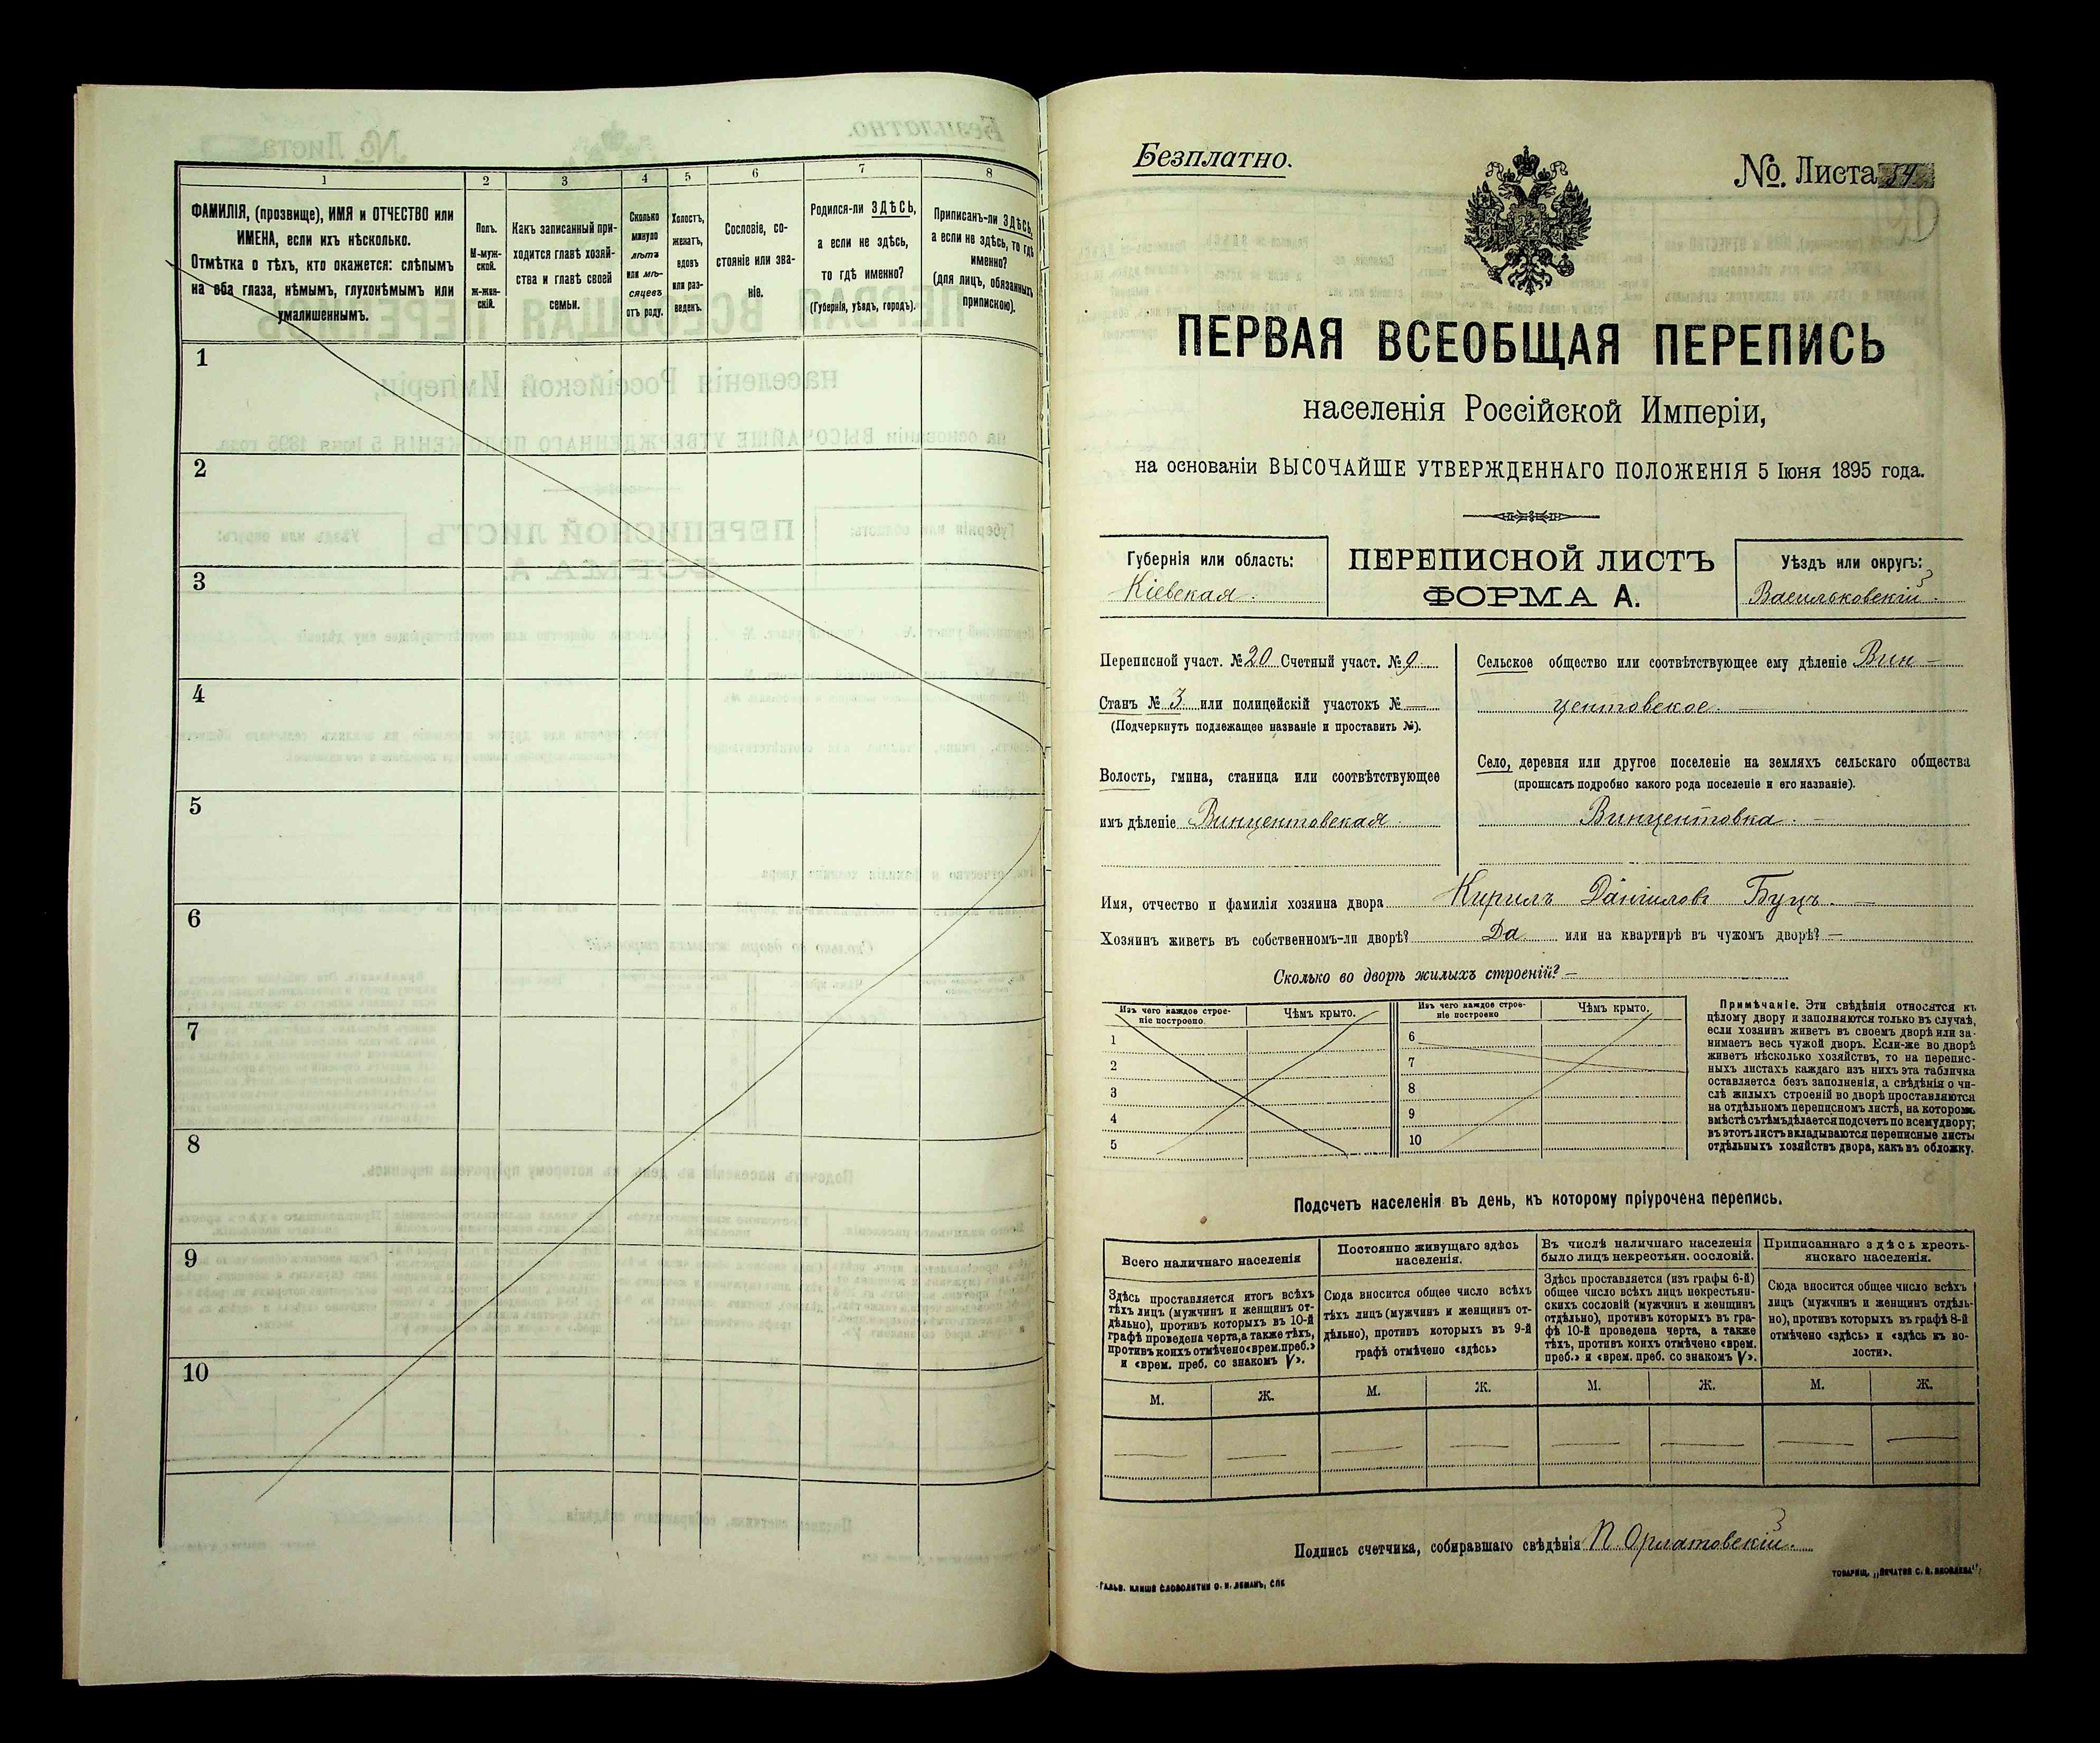 1 2 3 4 5 6 7 8
ФАМИЛІЯ, (прозвище), ИМЯ и ОТЧЕСТВО или
ИМЕНА, если ихъ нѣсколько.
Отмѣтка о тѣхъ, кто окажется: слѣпымъ
на оба глаза, нѣмымъ, глухонѣмымъ или
умалишеннымъ.
Полъ.
М-муж-
ской.
ж-жен-
скій.
Какъ записанный при-
ходится главѣ хозяй-
ства и главѣ своей
семьи.
Сколько
минуло
лѣтъ
или мѣ-
сяцевъ
отъ роду.
Холостъ,
женатъ,
вдовъ
или раз-
веденъ.
Сословіе, со-
стояніе или зва-
ніе.
Родился-ли ЗДѢСЬ,
а если не здѣсь,
то гдѣ именно?
(Губернія, уѣздъ, городъ).
Приписанъ-ли ЗДѢСЬ,
а если не здѣсь, то гдѣ
именно?
(для лицъ, обязанныхъ
припискою).
1
2
3
4
5
6
7
8
9
10
Безплатно.
№ Листа 54
ПЕРВАЯ ВСЕОБЩАЯ ПЕРЕПИСЬ
населенія Россійской Имперіи,
на основаніи ВЫСОЧАЙШЕ УТВЕРЖДЕННАГО ПОЛОЖЕНІЯ 5 Іюня 1895 года.
Губернія или область:
Кіевская.
ПЕРЕПИСНОЙ ЛИСТЪ
ФОРМА А.
Уѣздъ или округъ:
Васильковскій.
Переписной участ. № 20 Счетный участ. № 9
Станъ № 3 или полицейскій участокъ № —
(Подчеркнуть подлежащее названіе и проставить №).
Волость, гмина, станица или соотвѣтствующее
имъ дѣленіе Винцентовская.
Сельское общество или соотвѣтствующее ему дѣленіе Вин-
центовское. —
Село, деревня или другое поселеніе на земляхъ сельскаго общества
(прописать подробно какого рода поселеніе и его названіе).
Винцентовка. —
Имя, отчество и фамилія хозяина двора Кирилъ Даніиловъ Буцъ. —
Хозяинъ живетъ въ собственномъ-ли дворѣ? Да или на квартирѣ въ чужомъ дворѣ? —
Сколько во дворѣ жилыхъ строеній? —
Изъ чего каждое строе-
ніе построено.
Чѣмъ крыто.
Изъ чего каждое строе-
ніе построено
Чѣмъ крыто.
1
2
3
4
5
6
7
8
9
10
Примѣчаніе. Эти свѣдѣнія относятся къ
цѣлому двору и заполняются только въ случаѣ,
если хозяинъ живетъ въ своемъ дворѣ или за-
нимаетъ весь чужой дворъ. Если-же во дворѣ
живетъ нѣсколько хозяйствъ, то на перепис-
ныхъ листахъ каждаго изъ нихъ эта табличка
оставляется безъ заполненія, а свѣдѣнія о чи-
слѣ жилыхъ строеній во дворѣ проставляются
на отдѣльномъ переписномъ листѣ, на которомъ
вмѣстѣ съ тѣмъ дѣлается подсчетъ по всему двору;
въ этотъ листъ вкладываются переписные листы
отдѣльныхъ хозяйствъ двора, какъ въ обложку.
Подсчетъ населенія въ день, къ которому пріурочена перепись.
Всего наличнаго населенія
Здѣсь проставляется итогъ всѣхъ
тѣхъ лицъ (мужчинъ и женщинъ от-
дѣльно), противъ которыхъ въ 10-й
графѣ проведена черта, а также тѣхъ,
противъ коихъ отмѣчено «врем. преб.»
и «врем. преб. со знакомъ V».
Постоянно живущаго здѣсь
населенія.
Сюда вносится общее число всѣхъ
тѣхъ лицъ (мужчинъ и женщинъ от-
дѣльно), противъ которыхъ въ 9-й
графѣ отмѣчено «здѣсь»
Въ числѣ наличнаго населенія
было лицъ некрестьян. сословій.
Здѣсь проставляется (изъ графы 6-й)
общее число всѣхъ лицъ некрестьян-
скихъ сословій (мужчинъ и женщинъ
отдѣльно), противъ которыхъ въ гра-
фѣ 10-й проведена черта, а также
тѣхъ, противъ коихъ отмѣчено «врем.
преб.» и «врем. преб. со знакомъ V».
Приписаннаго здѣсь кресть-
янскаго населенія.
Сюда вносится общее число всѣхъ
лицъ (мужчинъ и женщинъ отдѣль-
но), противъ которыхъ въ графѣ 8-й
отмѣчено «здѣсь» и «здѣсь къ во-
лости».
М. Ж. М. Ж. М. Ж. М. Ж.
— — — — — — — —
Подпись счетчика, собиравшаго свѣдѣнія П. Орлатовскій.
ГАЛЬВ. КЛИШЕ СЛОВОЛИТНИ О. И. ЛЕМАНЪ, СПБ
ТОВАРИЩ. „ПЕЧАТНЯ С. П. ЯКОВЛЕВА"